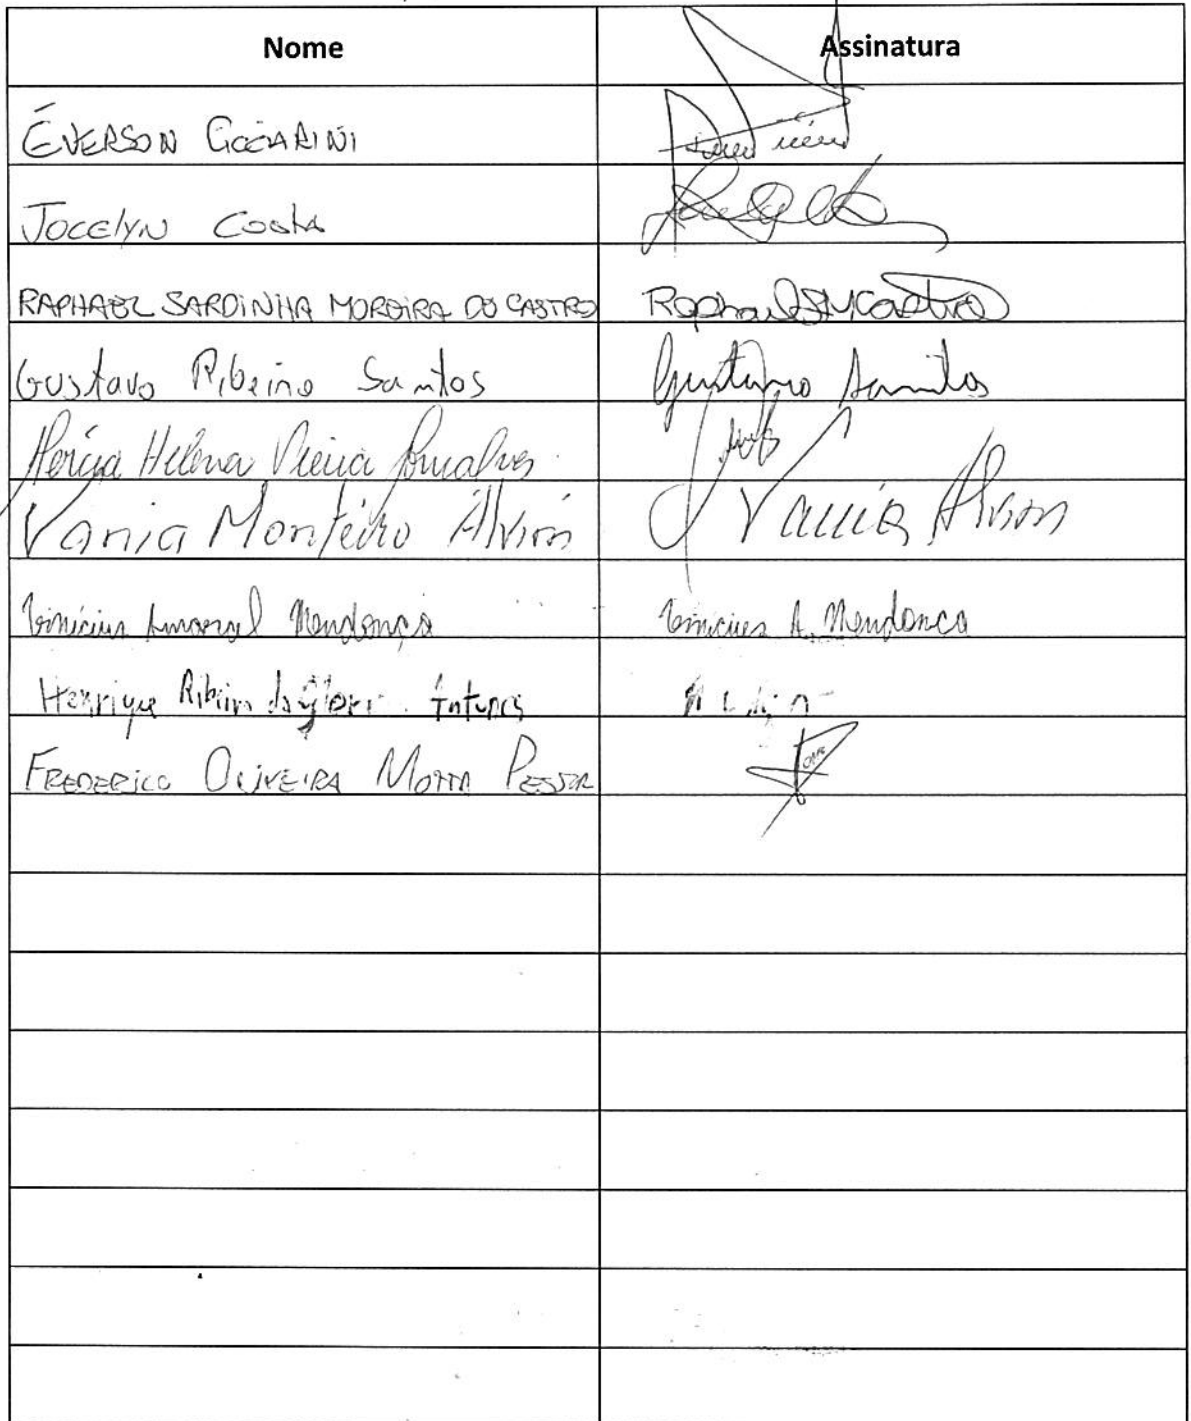 Nome Assinatura
ÉVERSON
Jocelyn Costa
RAPHAEL SARDINHA MOREIRA DE CASTRO Raphael SM Castro
Gustavo Ribeiro Santos Gustavo Santos
Helena Vieira Gonçalves
Vania Monteiro Vania
Vinicius Amaral Mendonça Vinicius A. Mendonça
Henrique Ribeiro da Antunes
FREDERICO OLIVEIRA MOTTA PESSOA